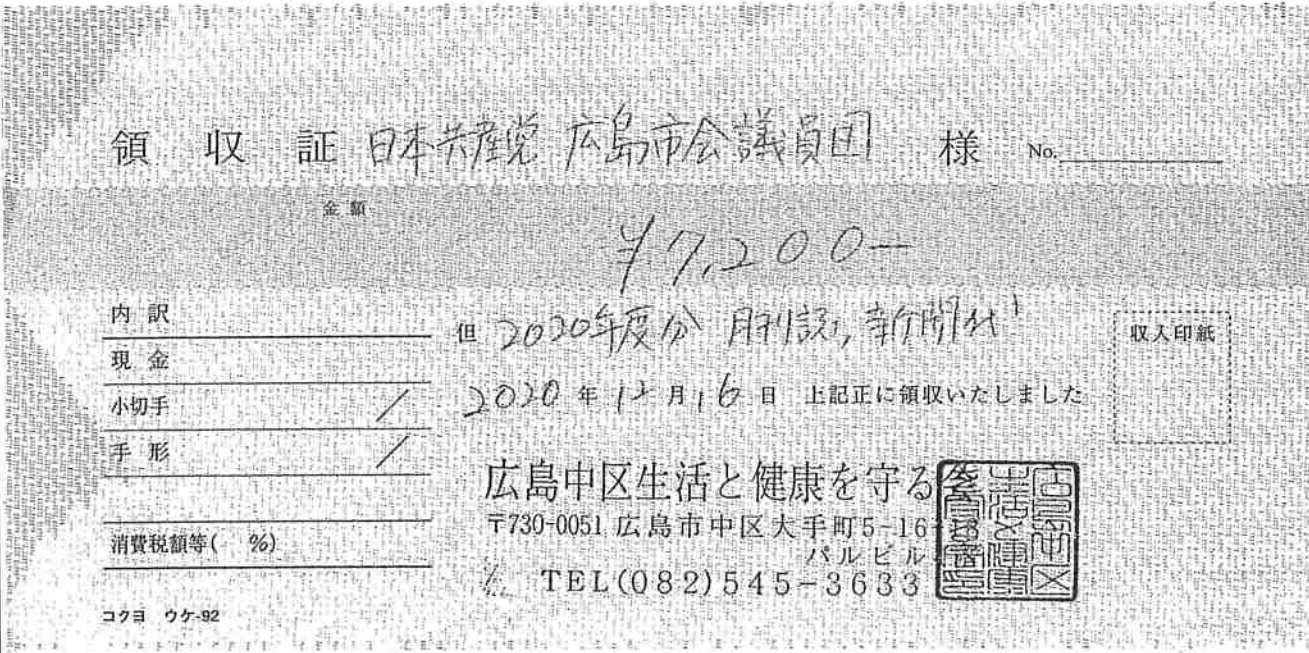 領収証 日本共産党 広島市会議員団 様 No.
金額
¥7,200-
内訳
現金
小切手
手形
消費税額等( %)
但 2020年度分 月刊誌,新聞代
2020年12月16日 上記正に領収いたしました
収入印紙
広島中区生活と健康を守る会
〒730-0051 広島市中区大手町5-16-18
パルビル
TEL(082)545-3633
コクヨ ウケ-92